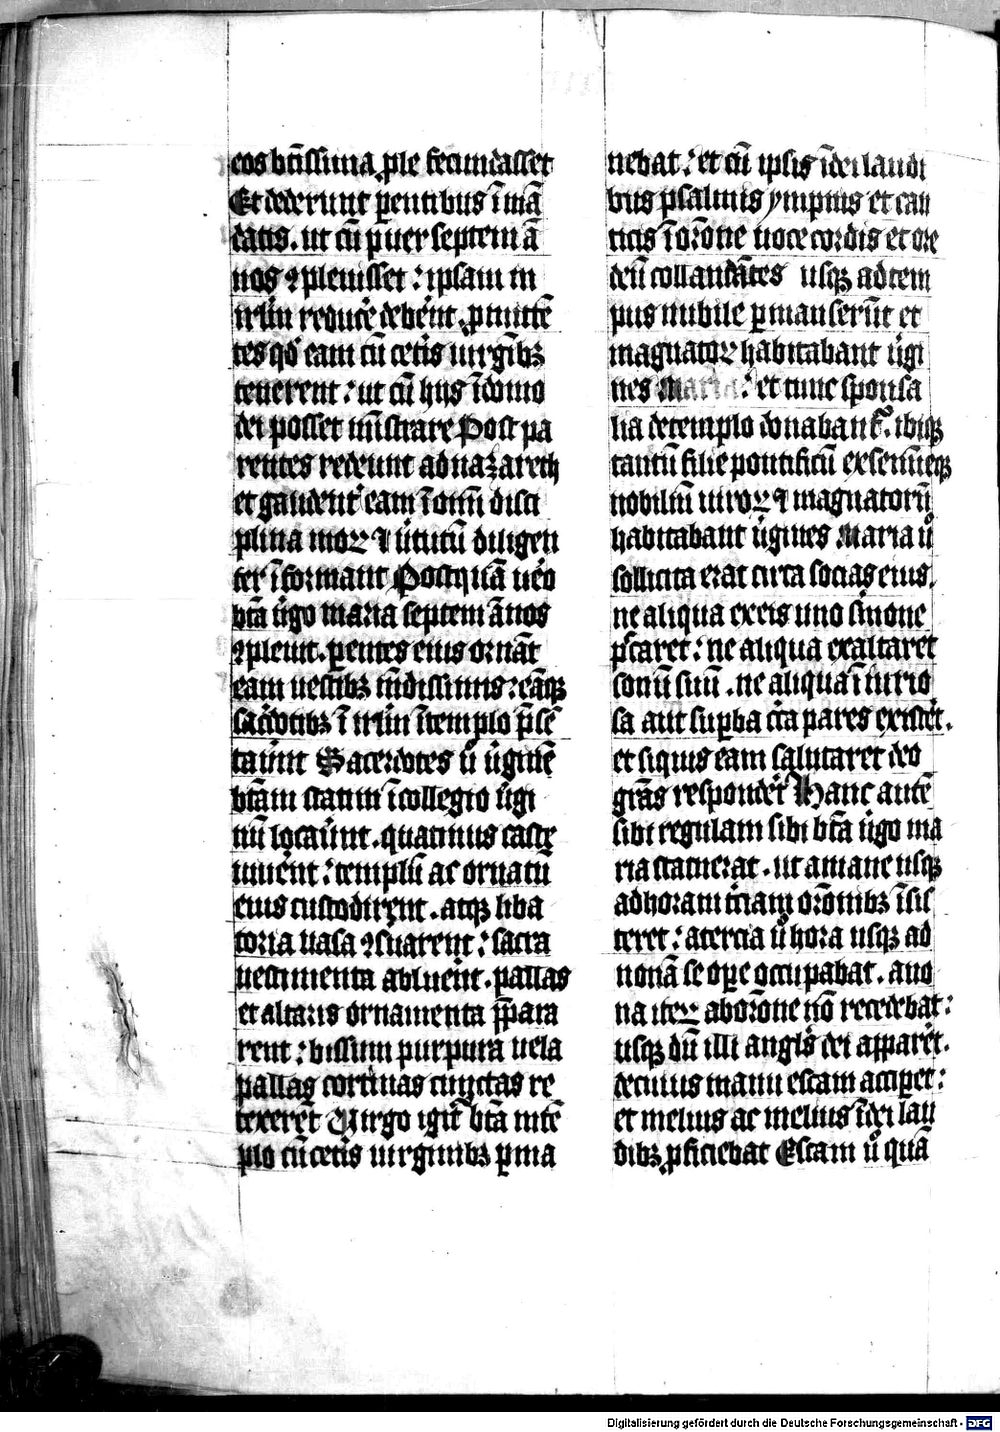 eos btīssima ꝓle fecundasset
Et dederunt ꝑentibus ī mā
datis. ut cū puer septem ā
nos ꝯpleuisset : ipsam in
irlm̄ reducē̄t debēnt ꝓmittē
tes qd̓ eam cū cetīs uirgībꝫ
teuerent : ut cū hijs ī domo
dei posset mīstrare Post pa
rentes redeunt ad nazareth
et gaudent̓ eam ī omī disci
plina moꝝ ⁊ ūtutū diligen
ter īformant Postquā uēo
btā ūgo maria septem ānos
ꝯpleuit. ꝑentes eius ornāt
eam uestibꝫ mūdissimis : eāqꝫ
sac̓dotibꝫ ī irlm̄ ī templo p̄sē
tauūnt Sacerdotes ū ūginē
btām statim ī collegio ūgi
nū locauūnt. quatinus caste
uiuēnt : templū ac ornatū
eius custodirent. atqꝫ liba
toria uasa ꝯsuarent : sacra
uestimenta abluēnt. pallas
et altaris ornamenta p̄para
rent : bissum purpura uela
pallas cortinas cunctas re
texerēt Uirgo igit̓ btā in tē
plo cū cetīs uirginibꝫ ꝑma
nebat : et cū ipsis ī dei laudi
bus psalmis ympnis et can
ticis ī or̄one uoce cordis et ore
deū collaudātes usqꝫ ad tem
pus nubile ꝑmanserūt et
magnatoꝝ habitabant ūgi
nes Maria : et tunc sponsa
lia de templo donabant̓. ibiqꝫ
tantū filie pontificū
nobiliū uiroꝝ ⁊ magnatorū
habitabant ūgines Maria ū
sollicita erat circa socias eius.
ne aliqua ex eis uno s̓mone
pc̄caret : ne aliqua exaltaret
sonū suū. ne aliqua īiurio
sa aut suꝑba cīta pares existēt.
et siquis eam salutaret deo
grās respondēt Hanc autē
sibi regulam sibi btā ūgo ma
ria statuerat. ut a mane usqꝫ
ad horam tciam or̄onibꝫ īsis
teret : a tercia ū hora usqꝫ ad
nonā se oꝑe occupabat. a no
na iteꝝ ab or̄one nō recedebat :
usqꝫ dū illi angls̓ dei apparēt.
de cuius manu escam acciꝑet :
et melius ac melius ī dei lau
dibꝫ ꝓficiebat Escam ū quā
Digitalisierung gefördert durch die Deutsche Forschungsgemeinschaft - DFG